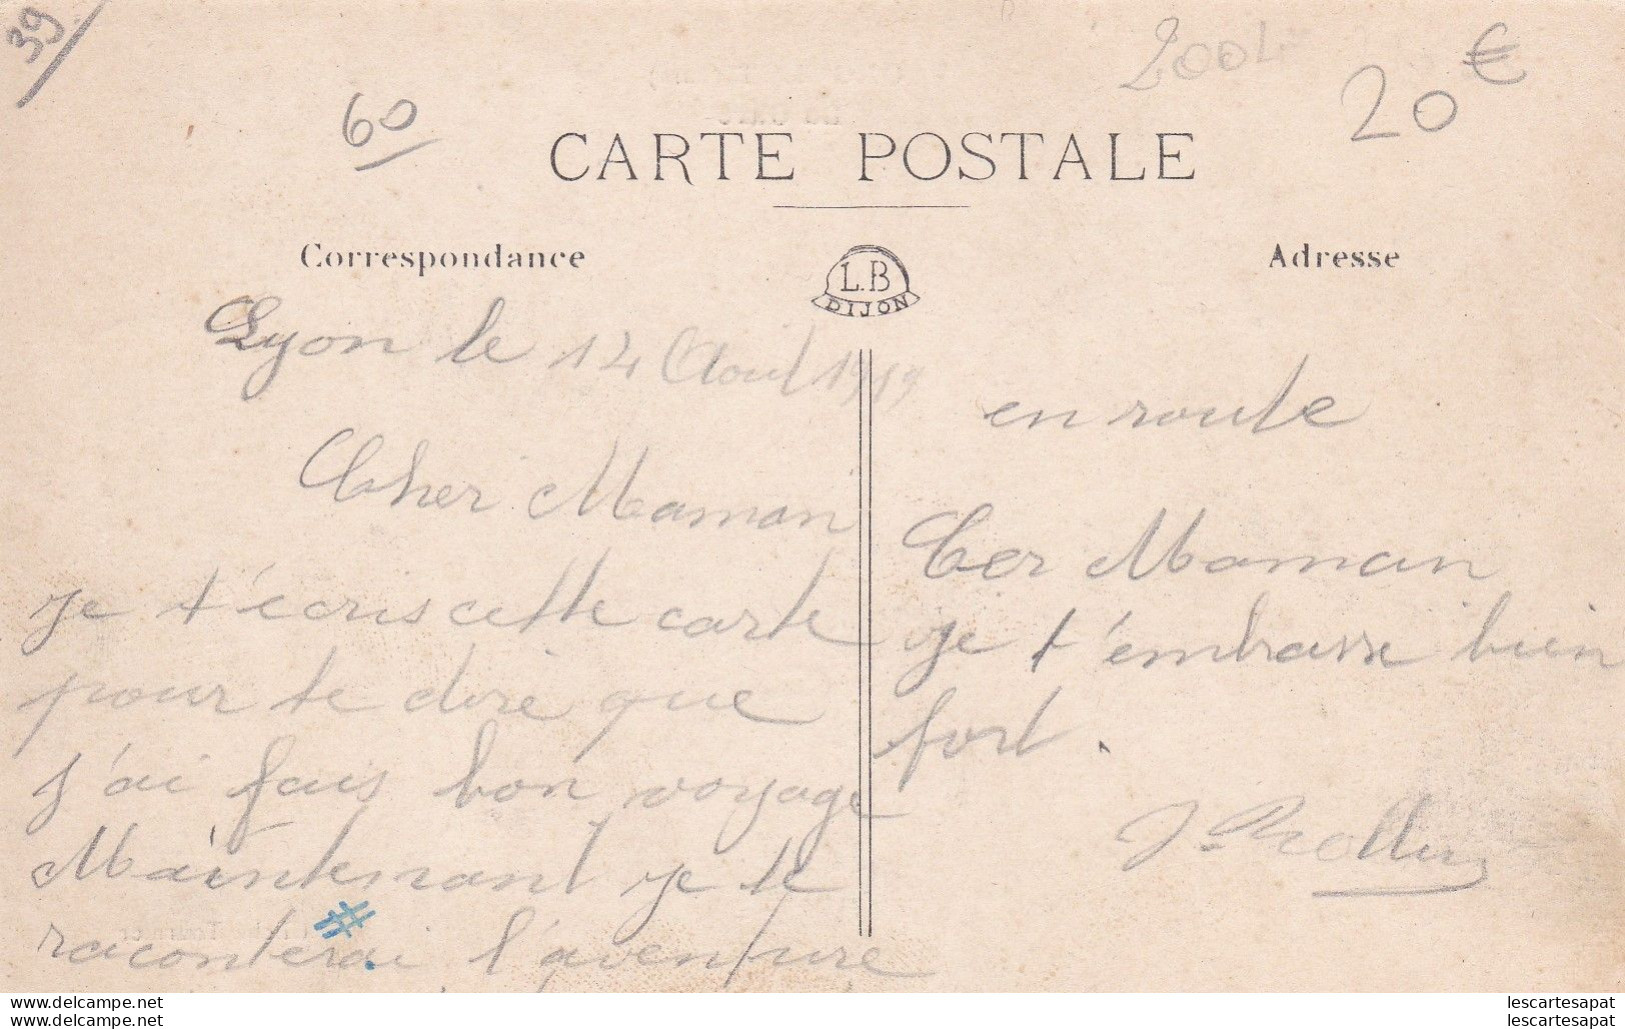 39/
60
2001
20 €
CARTE POSTALE
Correspondance
L.B
DIJON
Adresse
Lyon le 14 Aout 1917
Cher Maman
je t'écris cette carte
pour te dire que
j'ai fais bon voyage
Maintenant je te
raconterai l'aventure
en route
Cer Maman
je t'embrasse bien
fort.
www.delcampe.net
lescartesapat
www.delcampe.net
lescartesapat